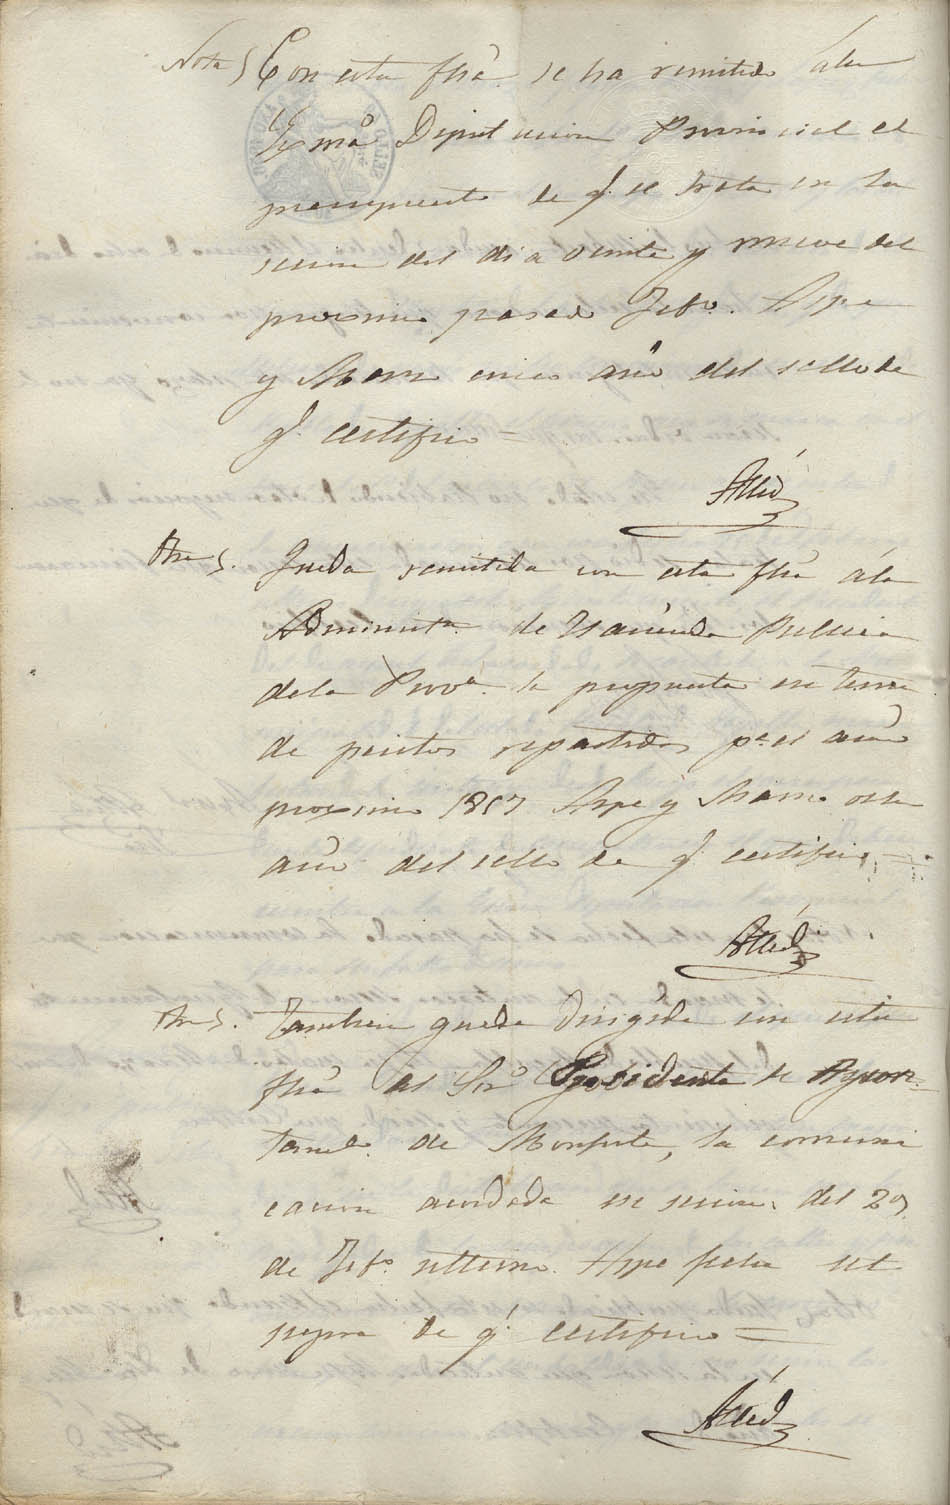 Nota Con esta fhã se ha remitido ala
Exmã Diputacion Provincial el
presupuesto de q. se trata en la
sesion del dia veinte y nueve del
procsimo pasado Febo. Aspe
y Marzo cinco año del sello de
q. certifico =
Otra Queda remitida con esta fhã ála
Administn. de Hacienda Publica
dela Prova. la propuesta en terna
de peritos repartidores pa. el año
procsimo 1857 Aspe y Marzo ocho
año del sello de q. certifico =
Otra Tambien queda dirigida con esta
fhã al Sor. Presidente de Ayun-
tamto. de Monforte, la comuni
cacion acordada en sesion del 29
de Febo. ultimo. Aspe fecha ut
supra de q. certifico =